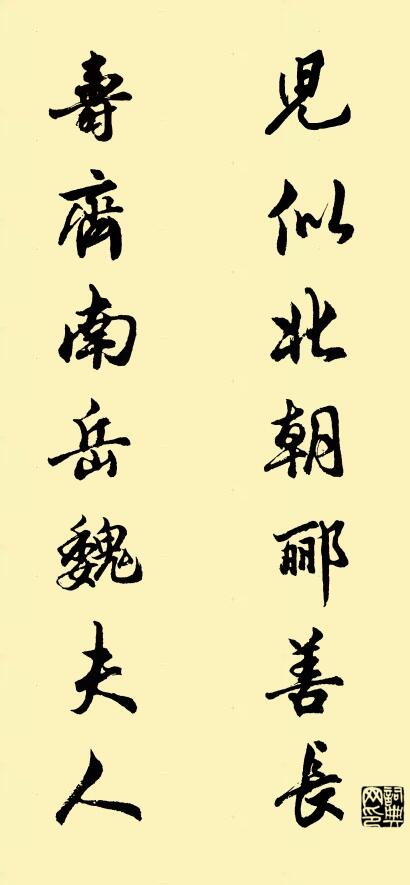 児似北朝郦善長
壽齊南岳魏夫人
詞典网印